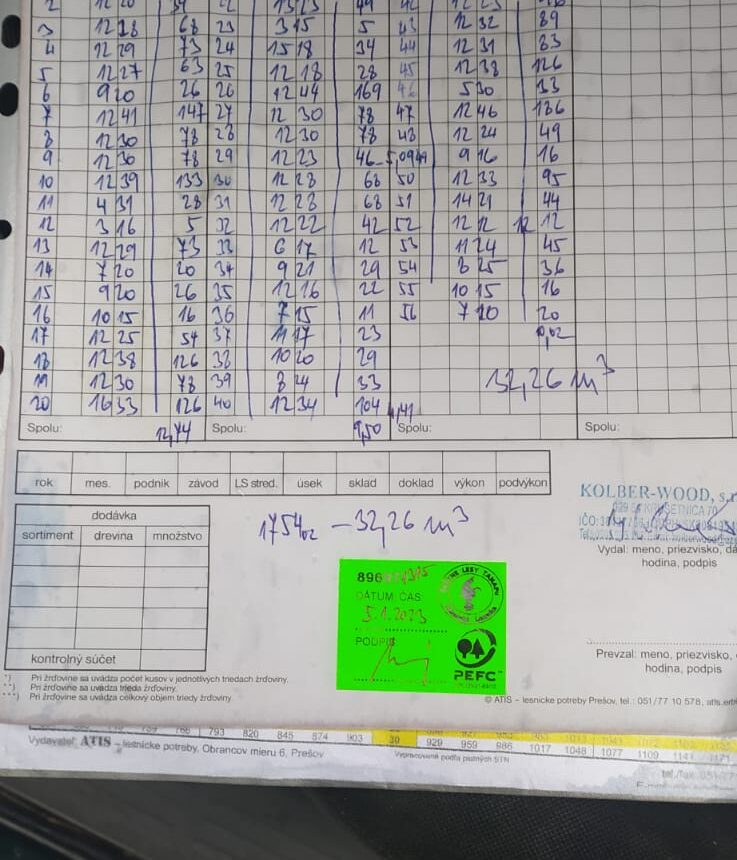 3 12 28 68 23 3 15 5 43 12 32 89
4 12 29 73 24 15 18 34 44 12 31 83
5 12 27 63 25 12 18 28 45 12 38 126
6 9 20 26 26 12 44 169 46 5 30 33
7 12 41 147 27 12 30 78 47 12 46 186
8 12 30 78 28 12 30 78 48 12 24 49
9 12 30 78 29 12 23 46 5,09 49 9 16 16
10 12 39 133 30 12 28 68 50 12 33 95
11 4 31 28 31 12 28 68 51 14 21 44
12 3 16 5 32 12 22 42 52 12 12 12 12
13 12 29 73 33 6 17 12 53 11 24 45
14 7 20 20 34 9 21 29 54 8 25 36
15 9 20 26 35 12 16 22 55 10 15 16
16 10 15 16 36 7 15 11 56 7 20 20
17 12 25 54 37 11 17 23
18 12 38 126 38 10 20 29
19 12 30 78 39 8 24 33 32,26 m³
20 16 33 126 40 12 34 104 4,41
Spolu: 12,74 Spolu: 9,50 Spolu: Spolu:
rok mes. podnik závod LS stred. úsek sklad doklad výkon podvýkon
KOLBER-WOOD, s.r
dodávka
sortiment drevina množstvo
1754 – 32,26 m³
IČO:
Vydal: meno, priezvisko, dá
hodina, podpis
896
DÁTUM ČAS
5.1.2023
PODPIS
PEFC™
kontrolný súčet
Prevzal: meno, priezvisko,
hodina, podpis
*) Pri žrďovine sa uvádza počet kusov v jednotlivých triedach žrďoviny.
**) Pri žrďovine sa uvádza trieda žrďoviny.
***) Pri žrďovine sa uvádza celkový objem triedy žrďoviny.
© ATIS – lesnícke potreby Prešov, tel.: 051/77 10 578, atis.
793 820 845 874 903 30 929 959 986 1017 1048 1077 1109 1141
Vydavateľ: ATIS – lesnícke potreby, Obrancov mieru 6, Prešov
Vypracované podľa platných STN